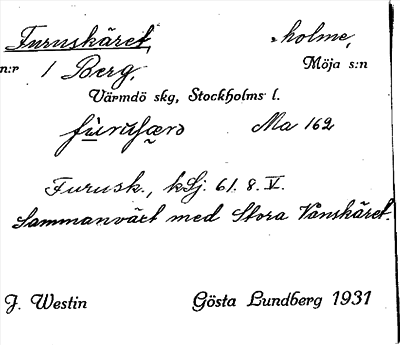 Furuskäret, holme,
n:r 1 Berg. Möja s:n
Värmdö skg, Stockholms l.
Ma 162
Furusk., kSj. 61. 8. V.
Sammanväxt med Stora Vånskäret.
J. Westin Gösta Lundberg 1931